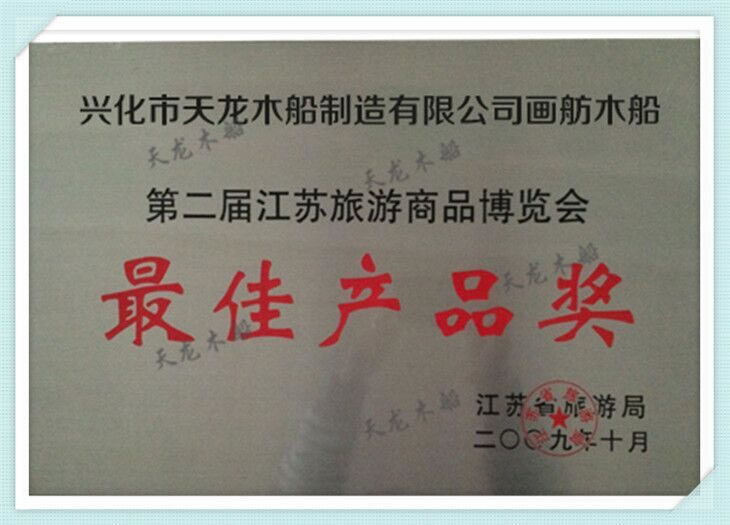 兴化市天龙木船制造有限公司画舫木船
天龙木船
天龙木船
第二届江苏旅游商品博览会
天龙木船
最佳产品奖
天龙木船
天龙木船
江苏省旅游局
二〇〇九年十月